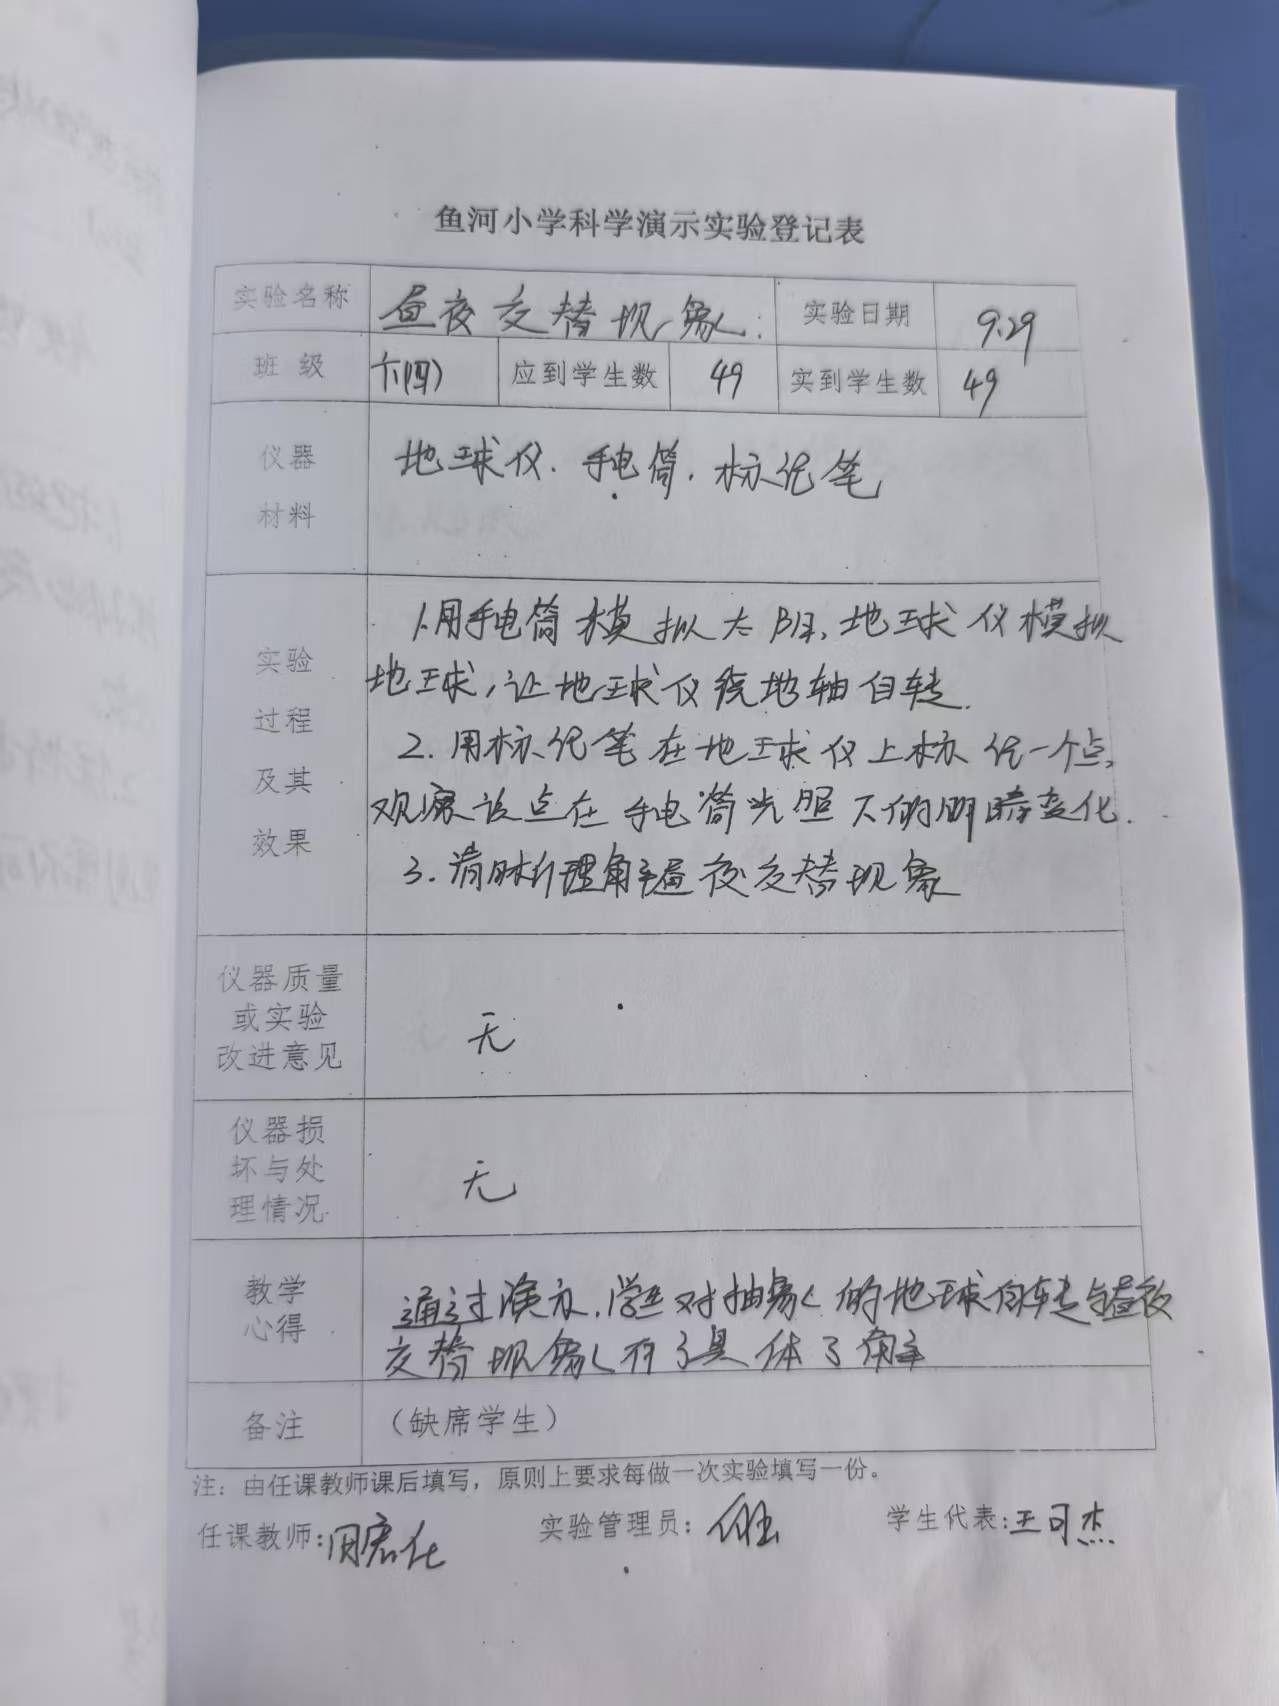 鱼河小学科学演示实验登记表
实验名称 昼夜交替现象: 实验日期 9.29
班 级 六(四) 应到学生数 49 实到学生数 49
仪器
材料
地球仪. 手电筒. 标记笔
实验
过程
及其
效果
1.用手电筒模拟太阳,地球仪模拟
地球,让地球仪绕地轴自转.
2.用标记笔在地球仪上标记一个点,
观察该点在手电筒光照下的明暗变化.
3.清晰理解昼夜交替现象
仪器质量
或实验
改进意见
无
仪器损
坏与处
理情况
无
教学
心得
通过演示,学生对抽象的地球自转与昼夜
交替现象有了具体了解
备注 (缺席学生)
注:由任课教师课后填写,原则上要求每做一次实验填写一份。
任课教师: 实验管理员: 学生代表:王可杰